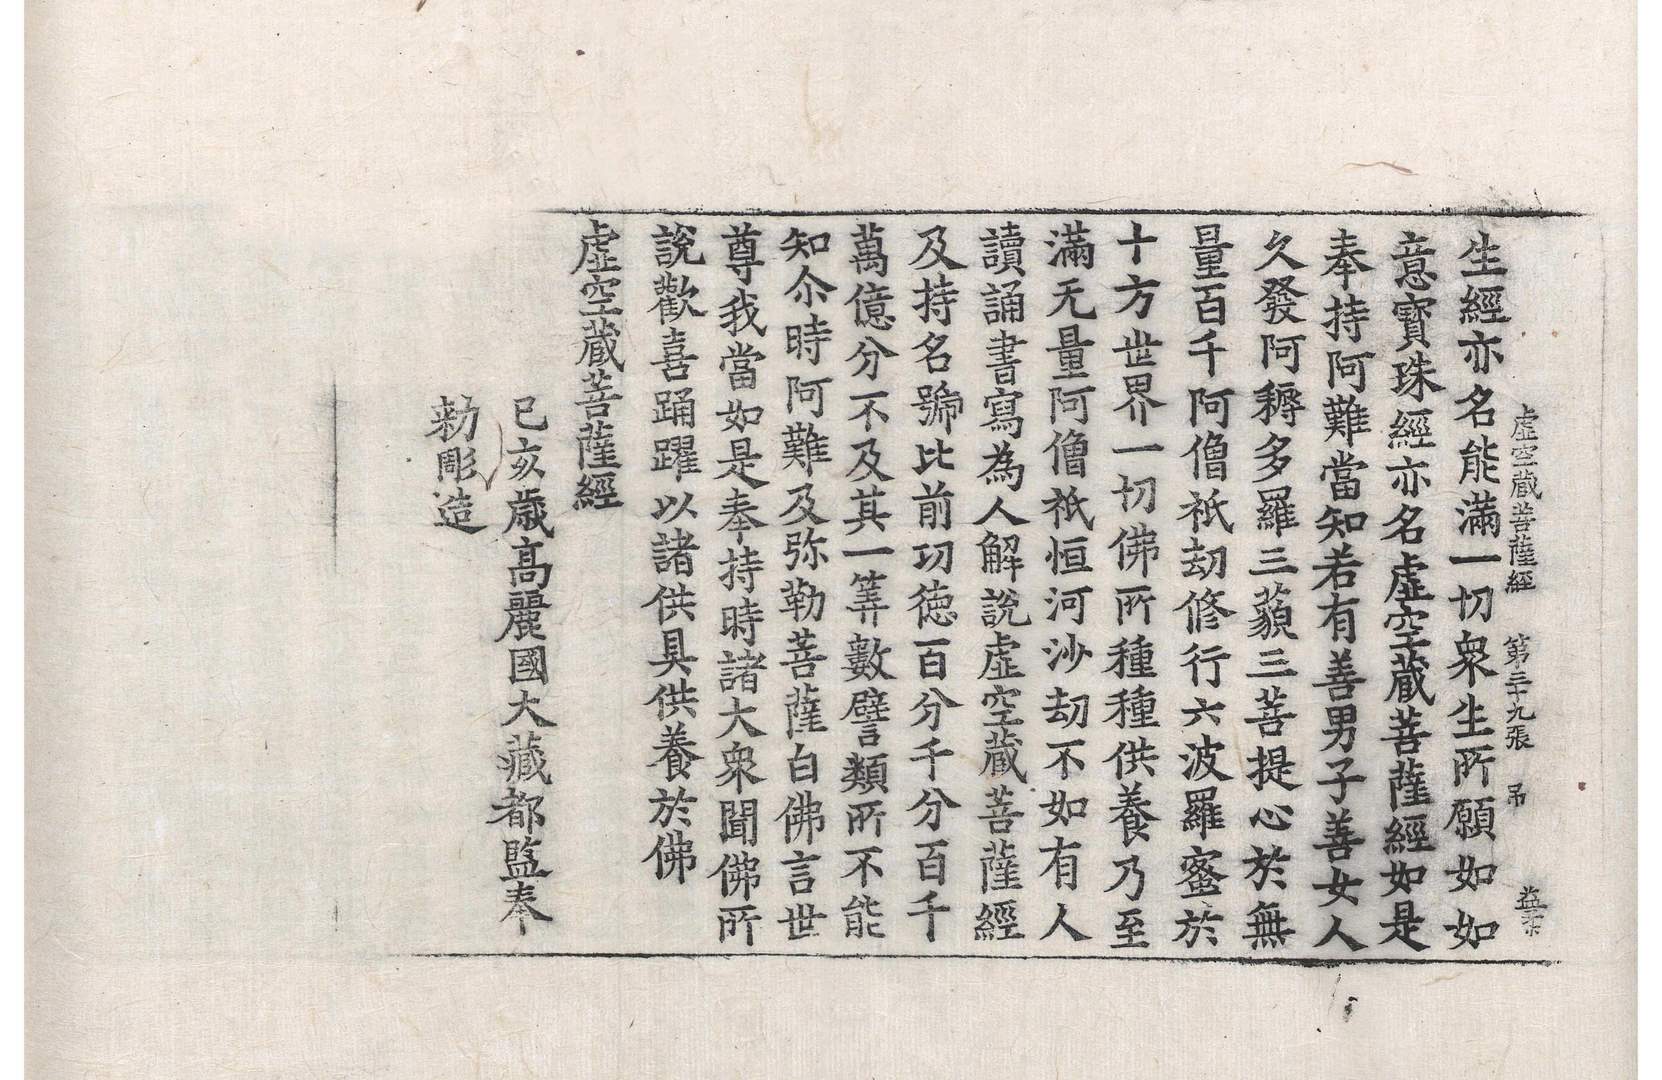 虛空藏菩薩經 第三十九張 吊
生經亦名能滿一切衆生所願如如
意寶珠經亦名虛空藏菩薩經如是
奉持阿難當知若有善男子善女人
久發阿耨多羅三藐三菩提心於無
量百千阿僧祇劫修行六波羅蜜於
十方世界一切佛所種種供養乃至
滿无量阿僧祇恒河沙劫不如有人
讀誦書寫為人解說虛空藏菩薩經
及持名號比前功徳百分千分百千
萬億分不及其一筭數譬類所不能
知尒時阿難及弥勒菩薩白佛言世
尊我當如是奉持時諸大衆聞佛所
說歡喜踊躍以諸供具供養於佛
虛空藏菩薩經
己亥歳高麗國大藏都監奉
勅彫造